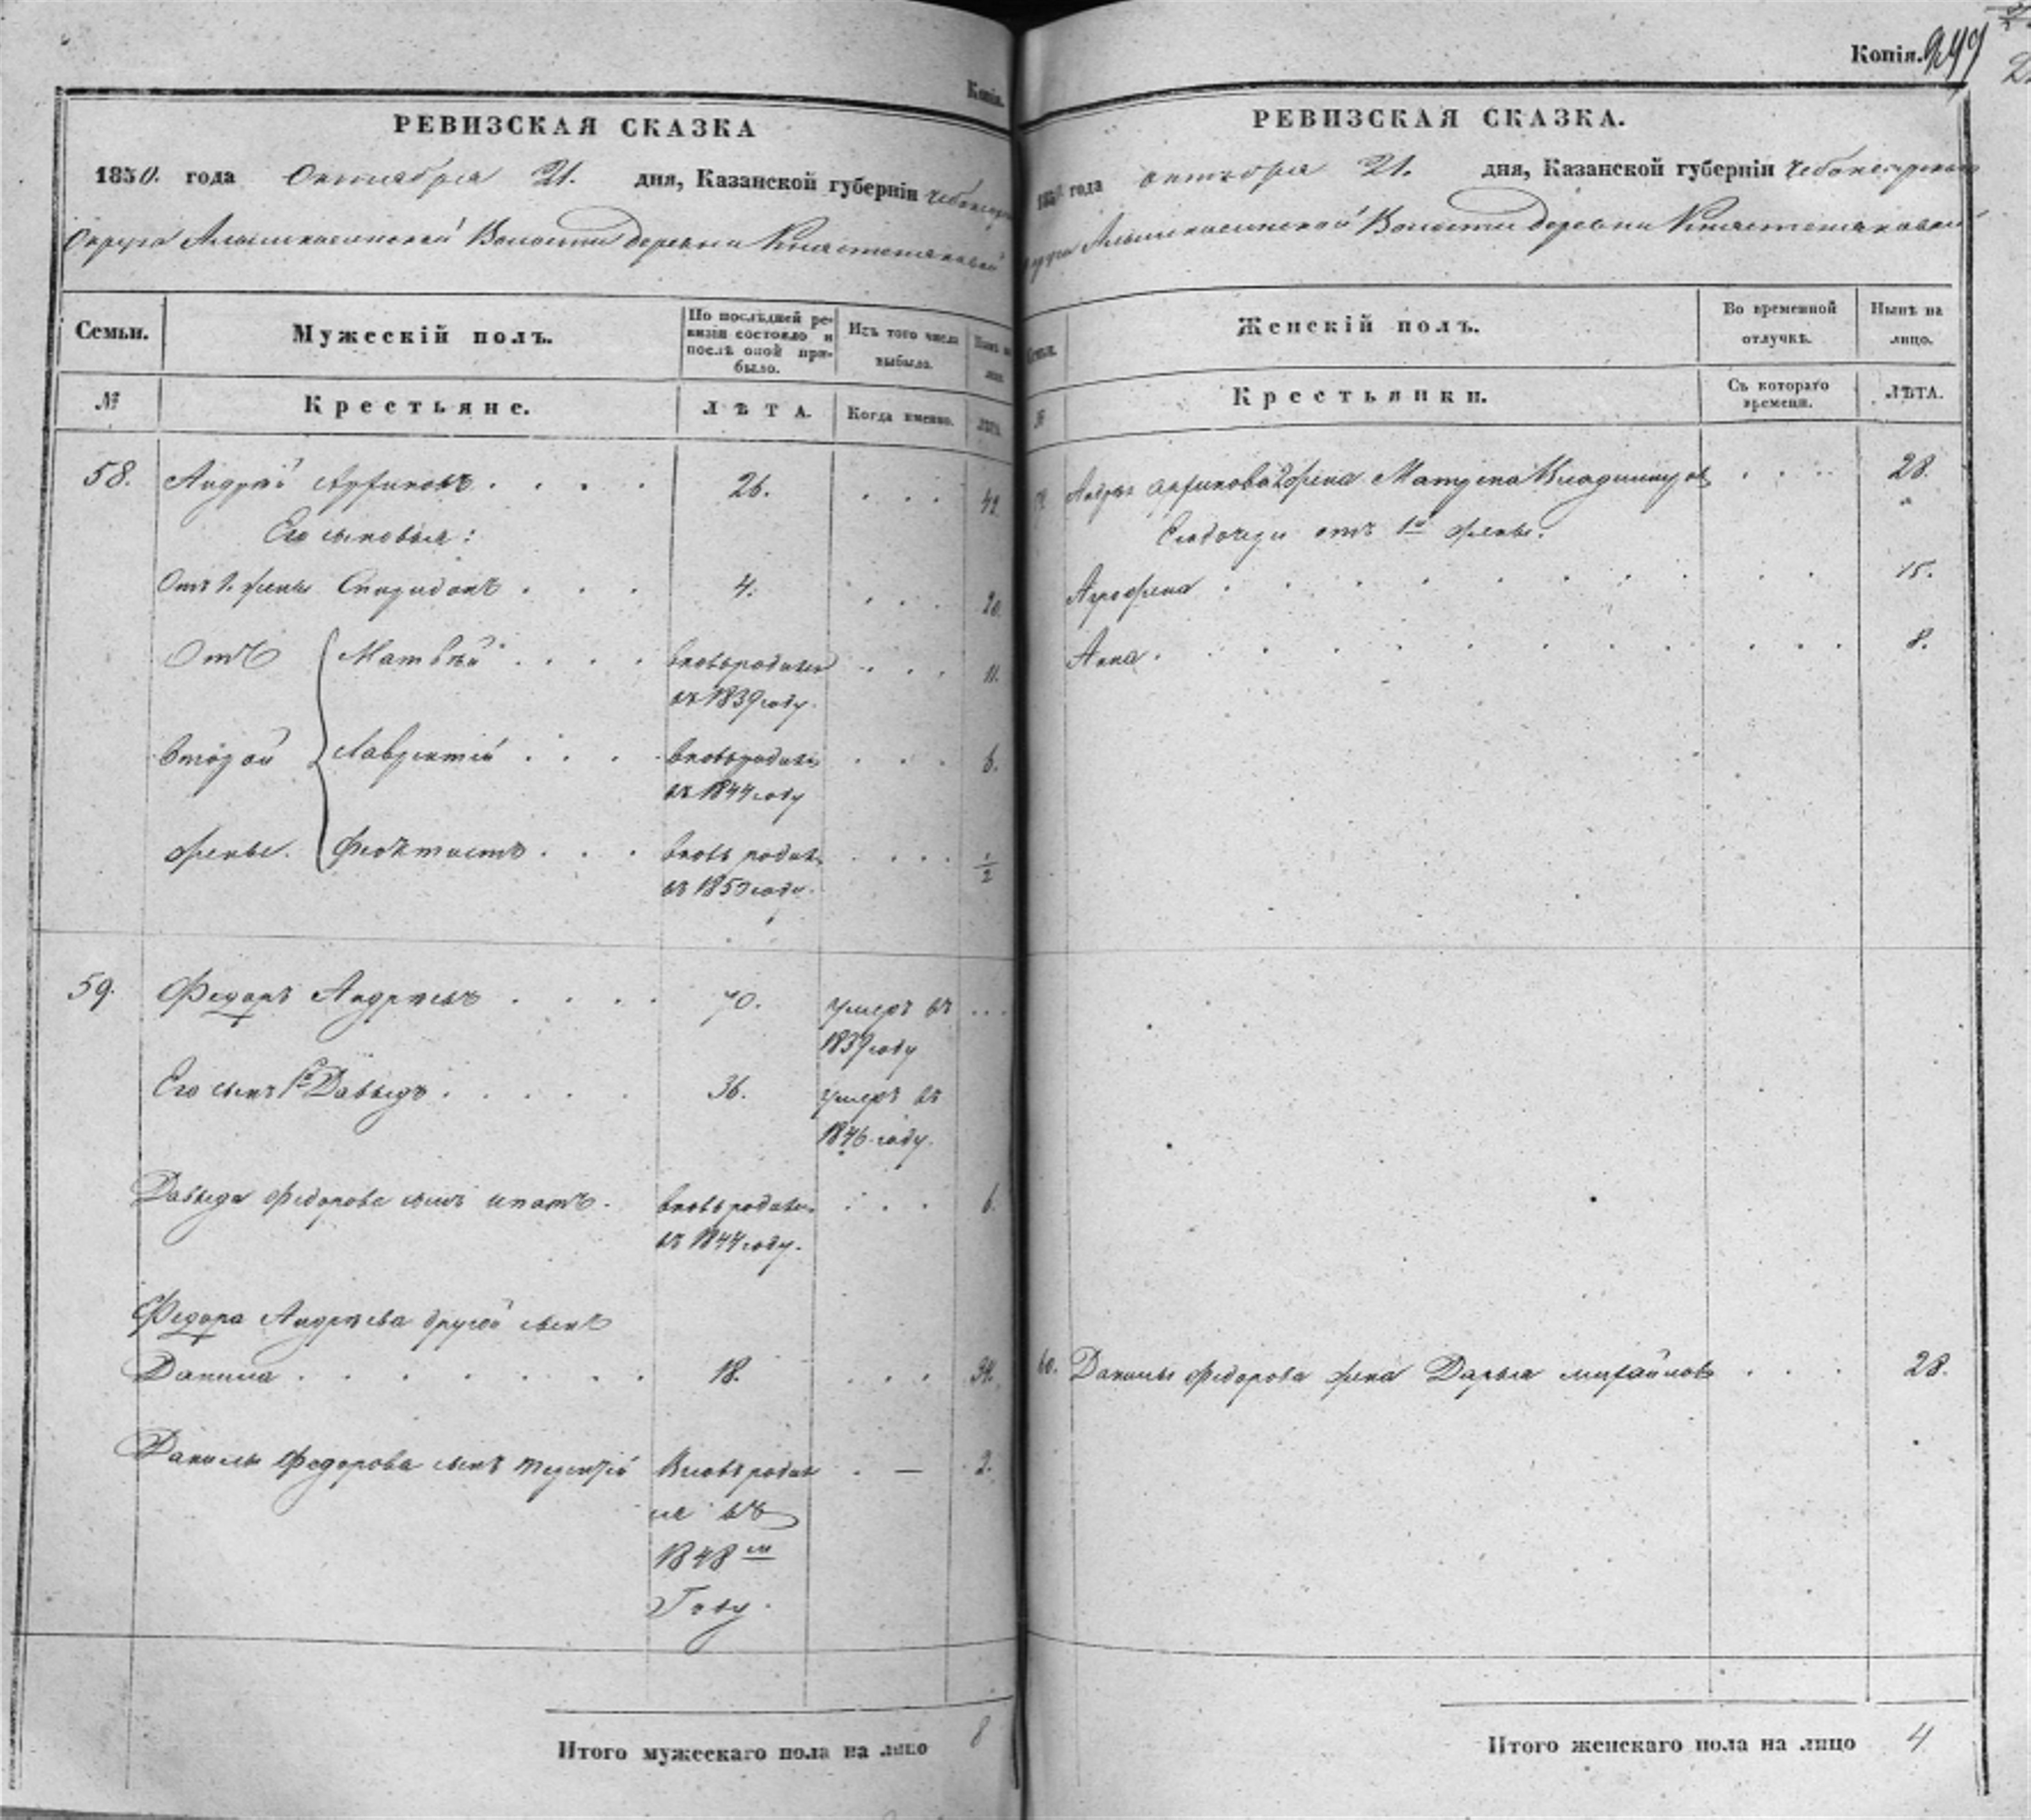 Копія.
РЕВИЗСКАЯ СКАЗКА
1850. года Октября 21. дня, Казанской губерніи Чебоксар
Округа Алымкасинской Волости деревни
Семьи. Мужескій полъ. По послѣдней ревизіи состояло и послѣ оной прибыло. Изъ того числа выбыло. Нынѣ на лицо
№ Крестьяне. ЛѢТА. Когда именно. ЛѢТА
58. Андрей . . . . 26. . . . 42.
Его сыновья:
Отъ 1. жены Спиридонъ . . . 4. . . . 20.
Отъ Матвѣй . . . . вновьродился . . . 11.
въ 1839 году.
второй Лаврентій . . . вновьродился . . . 6.
въ 1844 году
жены. . . . вновь родился . . . . 1/2
въ 1850 году.
59. Федоръ Андреевъ . . . . 70. умеръ въ . . .
1839 году
Его сынъ 1й Давыдъ . . . . . 36. умеръ въ
1846 году.
Давыда Федорова сынъ Ипатъ. вновьродился . . . 6.
въ 1844 году.
Федора Андреева другой сынъ
Данила . . . . . . . 18. . . . 34.
Данилы Федорова сынъ Терентій Вновь родил . — 2.
ся въ
1848 м
Году.
Итого мужескаго пола на лицо 8
Копія. 244
РЕВИЗСКАЯ СКАЗКА.
1850 года октября 21. дня, Казанской губерніи Чебоксарскаго
округа Алымкасинской Волости деревни
Семьи. Женскій полъ. Во временной отлучкѣ. Нынѣ на лицо.
№ Крестьянки. Съ котораго времени. ЛѢТА.
Андрея 2 жена Матрена Владимирова . . . 28.
Его дочери отъ 1й жены.
Агрофена . . . . . . . . . 15.
Анна . . . . . . . . . . 8.
60. Данилы Федорова жена Дарья Михайлова . . . 28.
Итого женскаго пола на лицо 4